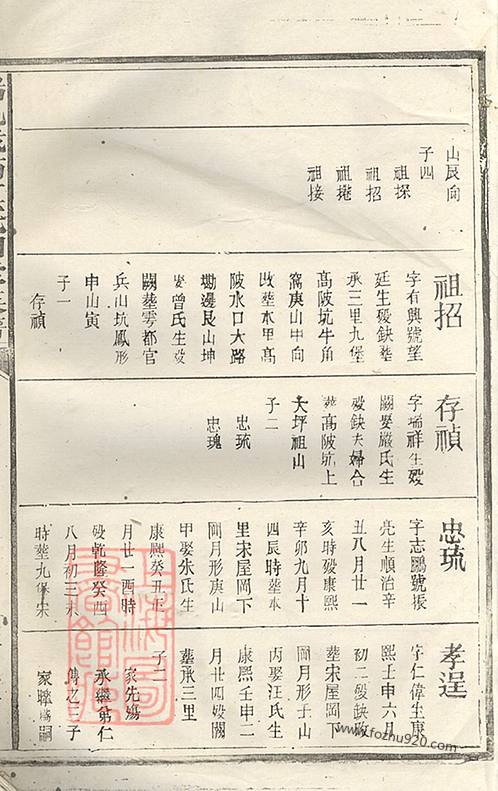 山辰向
子四
祖探
祖招
祖捲
祖接
祖招
字有興號望
廷生殁缺葬
承三里九堡
高陂坑牛角
窩庚山甲向
改葬本甲高
陂水口大路
塝邊艮山坤
娶曾氏生殁
闕葬雩都官
兵山坑鳳形
申山寅
子一
存禎
存禎
字瑞祥生殁
闕娶嚴氏生
殁缺夫婦合
葬高陂坑上
大坪祖山
子二
忠琉
忠瑰
忠琉
字志鵬號振
亮生順治辛
丑八月廿一
亥時殁康熙
辛卯九月十
四辰時葬本
里宋屋岡下
岡月形庚山
甲娶朱氏生
康熙癸丑正
月廿一酉時
殁乾隆癸四
八月初三未
時葬九堡宋
孝逞
字仁偉生康
熙壬申六月
初二殁缺
葬宋屋岡下
岡月形壬山
丙娶汪氏生
康熙壬申二
月廿四殁闕
葬承三里
子二
家先殤
承繼弟仁
傳之三子
家聯為嗣
www.fozhu920.com